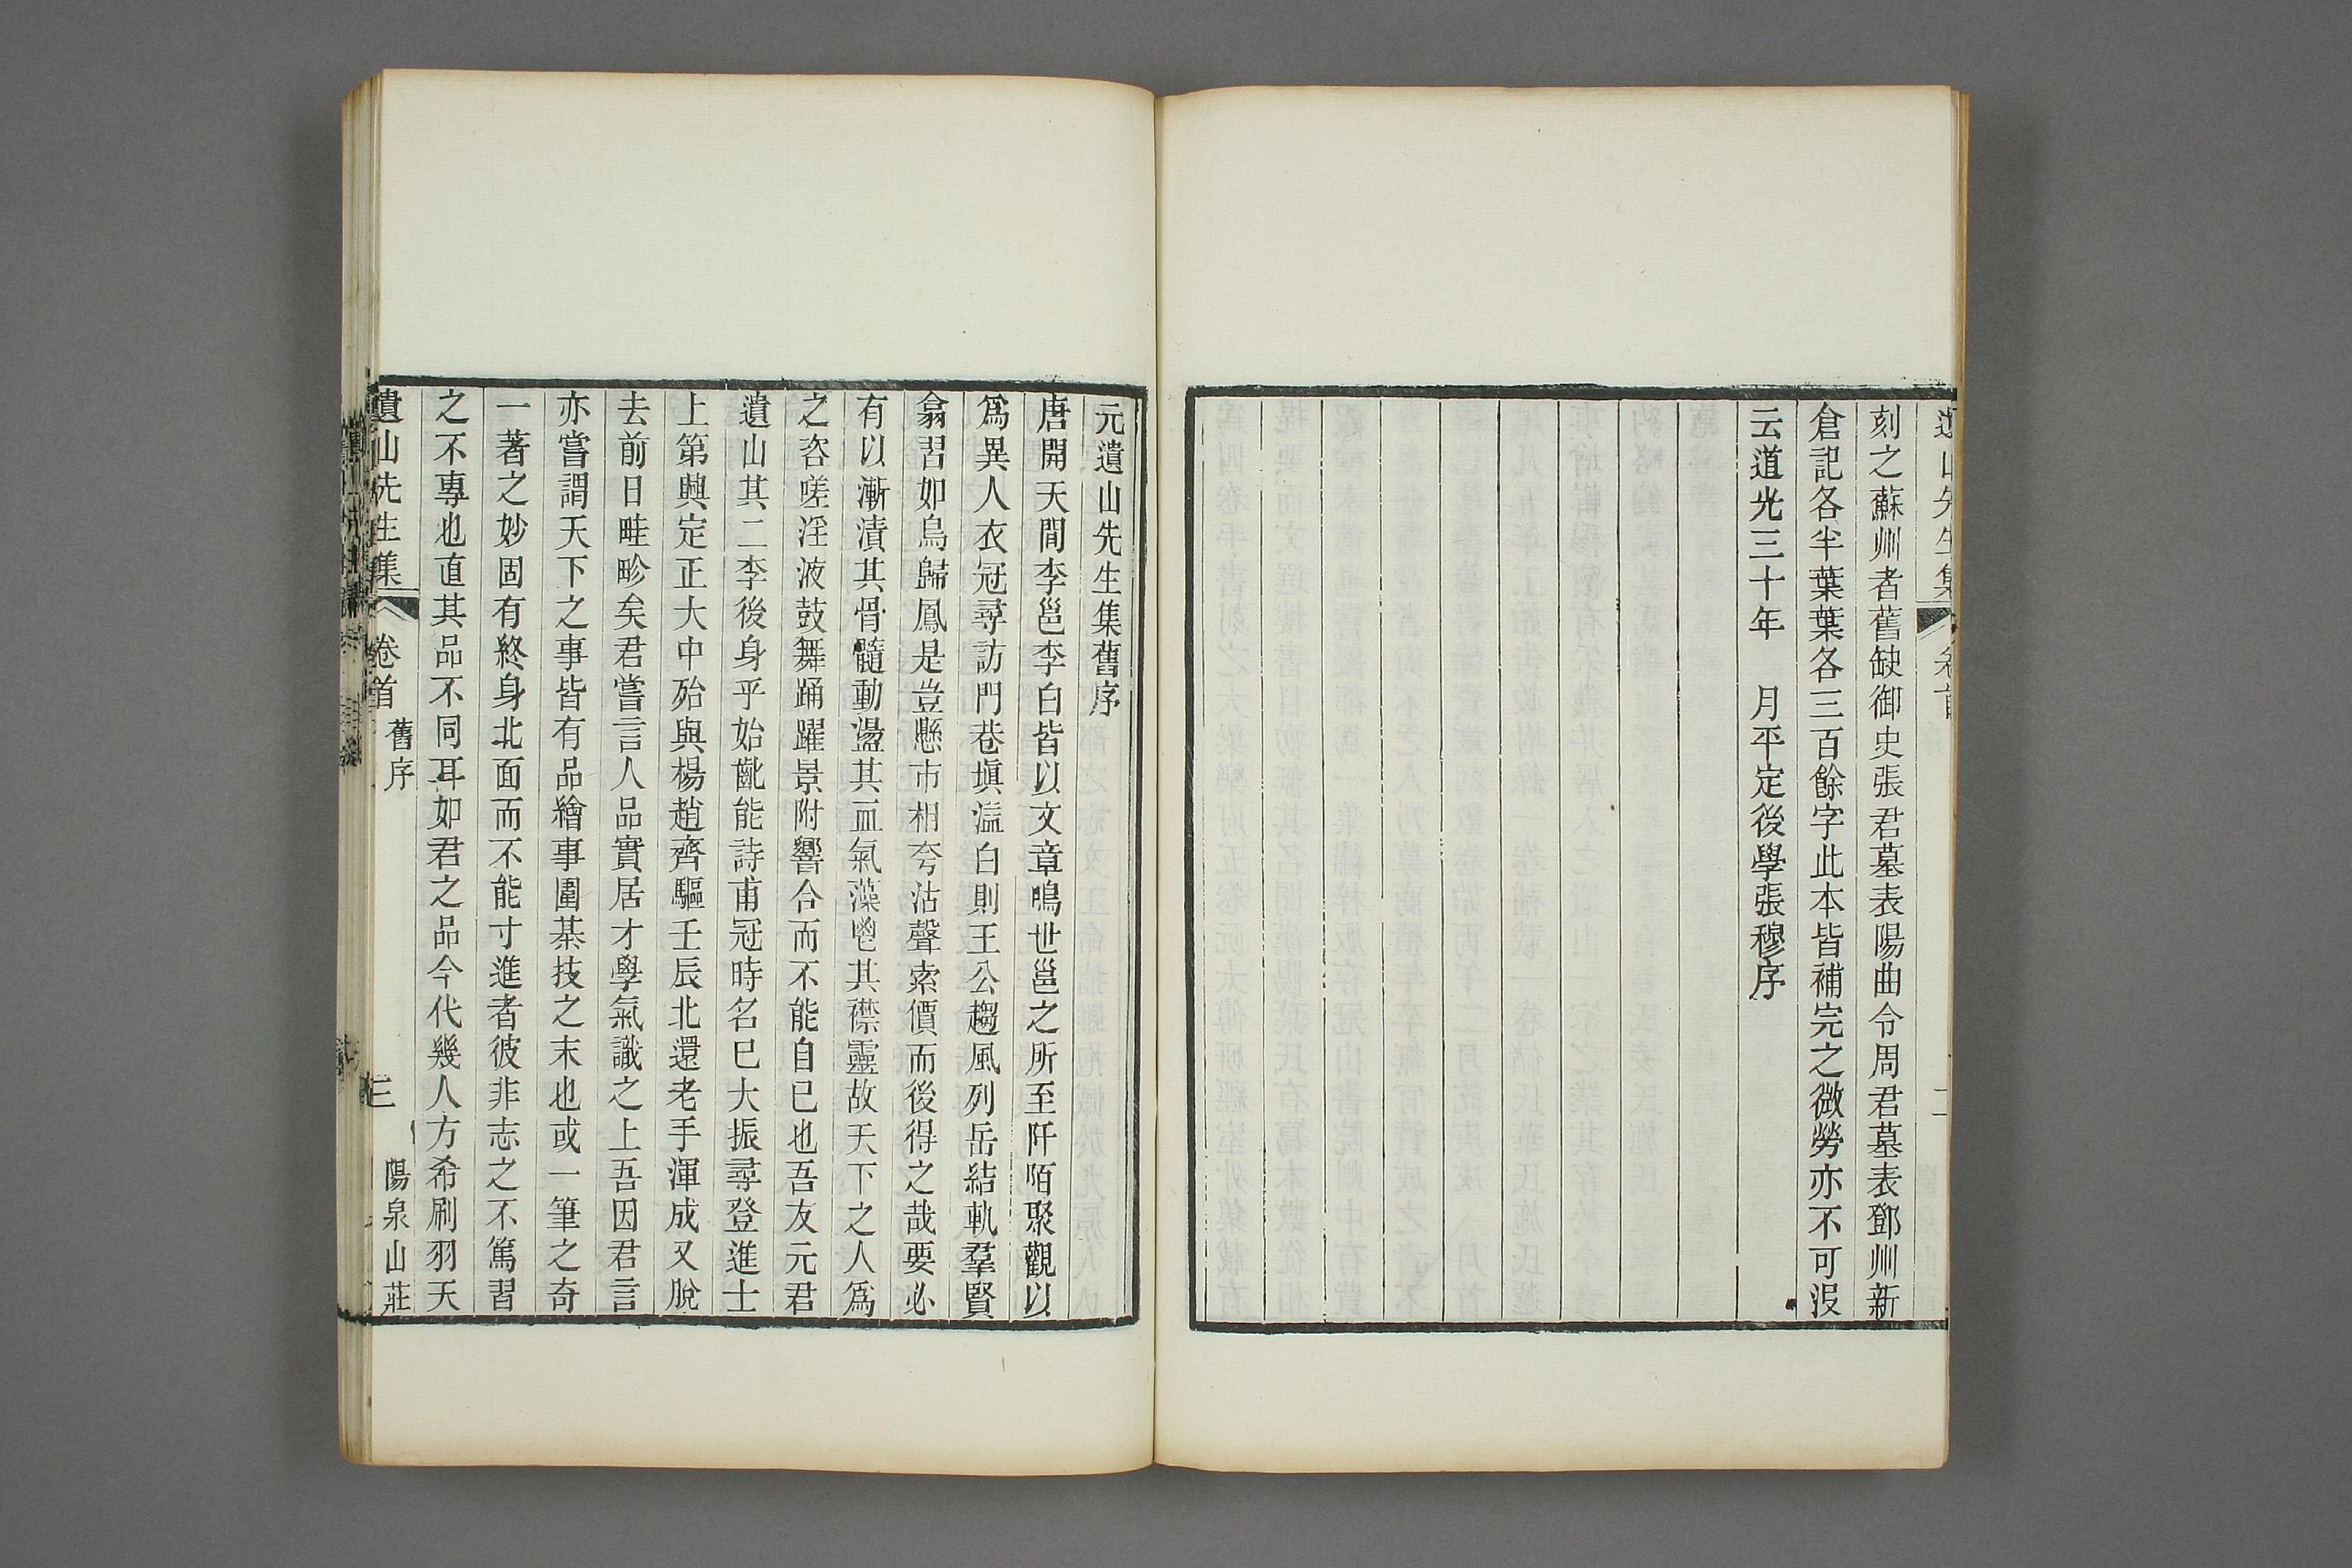 遺山先生集 卷首 二
刻之蘇州者舊缺御史張君墓表陽曲令周君墓表鄧州新
倉記各半葉葉各三百餘字此本皆補完之微勞亦不可沒
云道光三十年 月平定後學張穆序
元遺山先生集舊序
唐開天間李邕李白皆以文章鳴世邕之所至阡陌聚觀以
爲異人衣冠尋訪門巷塡溢白則王公趨風列岳結軌羣賢
翕習如鳥歸鳳是豈懸市相夸沽聲索價而後得之哉要必
有以漸漬其骨髓動盪其血氣藻鬯其襟靈故天下之人爲
之咨嗟淫液鼓舞踊躍景附響合而不能自已也吾友元君
遺山其二李後身乎始齔能詩甫冠時名已大振尋登進士
上第興定正大中殆與楊趙齊驅壬辰北還老手渾成又脫
去前日畦畛矣君嘗言人品實居才學氣識之上吾因君言
亦嘗謂天下之事皆有品繪事圍棊技之末也或一筆之奇
一著之妙固有終身北面而不能寸進者彼非志之不篤習
之不專也直其品不同耳如君之品今代幾人方希刷羽天
遺山先生集 卷首 舊序 三 陽泉山莊